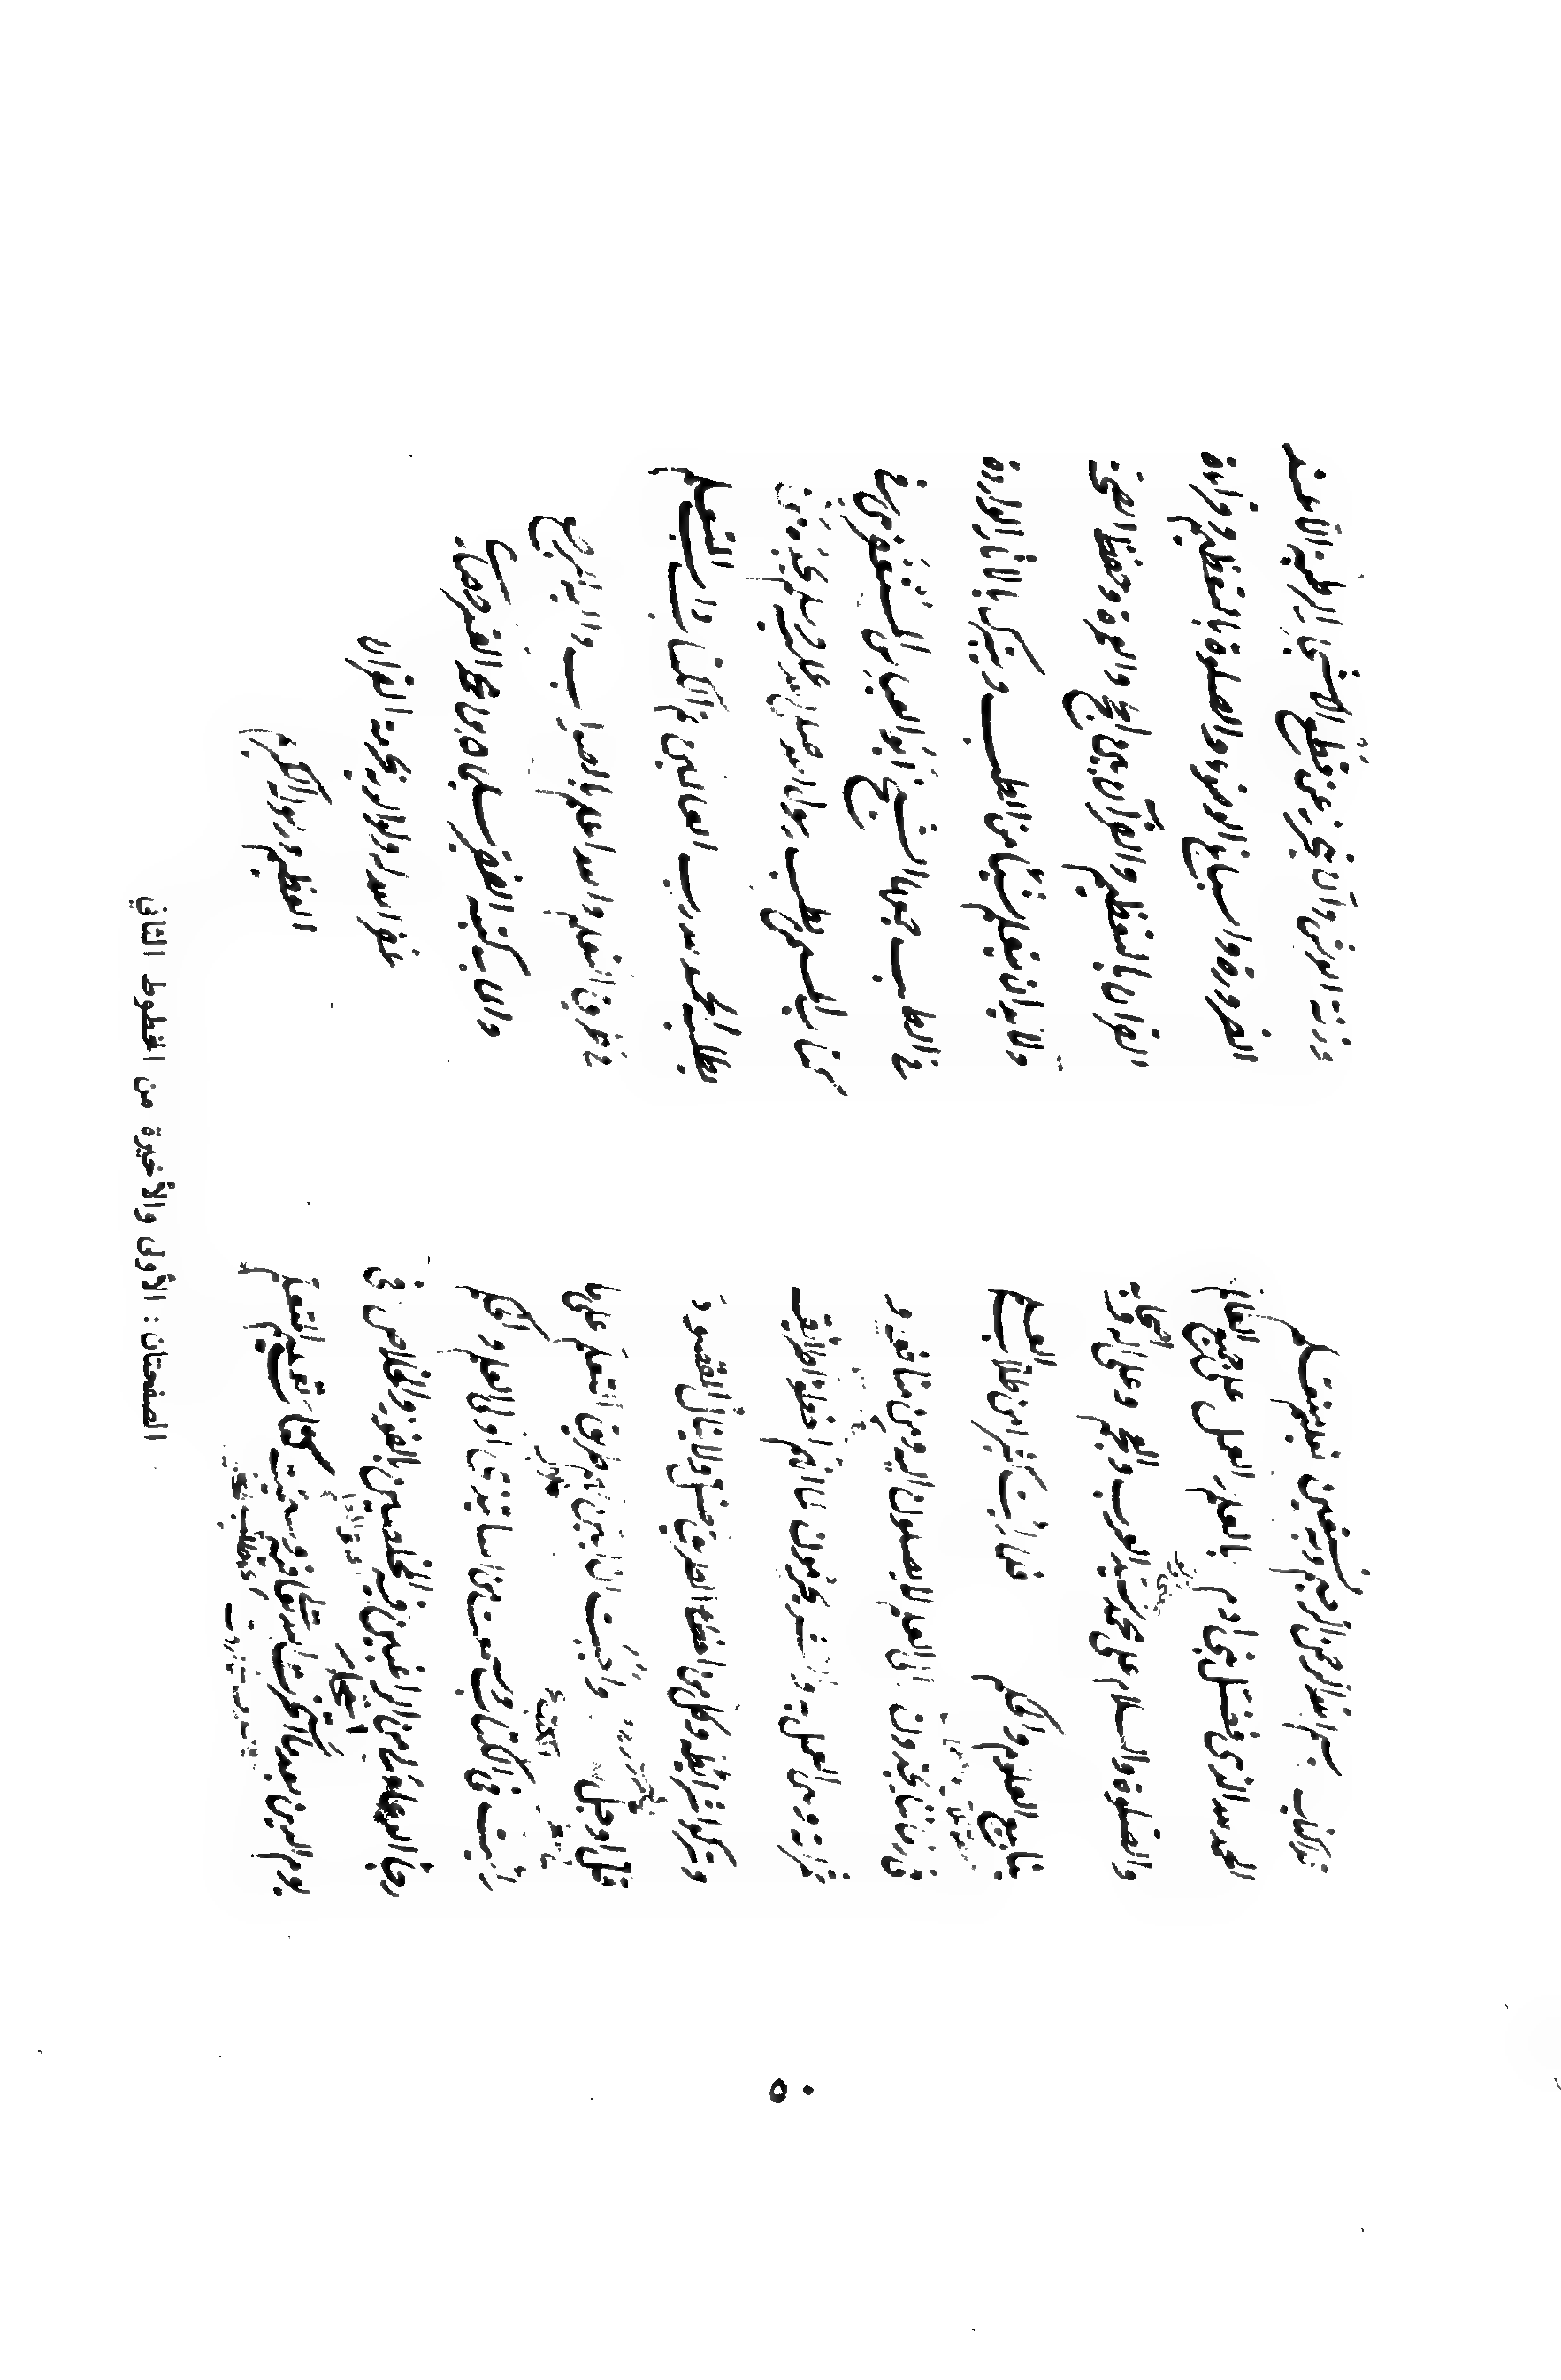 بسم الله الرحمن الرحيم وبه نستعين
الحمد لله الذي فضل بني آدم بالعلم والعمل على جميع العالم
والصلوة والسلام على محمد سيد العرب والعجم وعلى اله واصحابه
ينابيع العلوم والحكم فلما رأيت كثيرا من طلاب العلم
في زماننا يجدون الى العلم لا يصلون اليه ومن منافعه و
ثمراته وهى العمل به والنشر يحرمون لما انهم اخطاؤا طرائقه
وتركوا شرائطه وكل من اخطاء الطريق ضل ولا ينال المقصود
قل او جل واحببت ان ابين لهم طريق التعلم على ما
رأيت في الكتاب وسمعت من اساتيذى اولى العلم والحكم
رجاء الدعاء لى من الراغبين فيه المخلصين بالفوز والخلاص في
يوم الدين بعد ما استخرت الله تعالى فيه وسميته كتاب تعليم المتعلم
وزنة العرش وان يحترز عن قطع الاشجار الرطبة الا عند
الضرورة واسباغ الوضوء والصلوة بالتعظيم وقراءة
القران بالتعظيم والقرآن بين الحج والعمرة وحفظ الصحة
ولا بد ان يتعلم شيئا من الطب ويتبرك بالاثار الواردة
في الطب جمعها الشيخ ابو العباس المستغفرى في
كتاب المسمى بطب رسول الله صلى الله عليه وسلم يجده من
يطلبه الحمد لله رب العالمين تم الكتاب باب التعلم
في طريق التعلم والله اعلم بالصواب واليه المرجع
والماب كتبه الفقير
غفر الله له ولوالديه بحرمة القران
العظيم ورسوله الكريم
الصفحتان : الأولى والأخيرة من المخطوط الثاني
٥٠